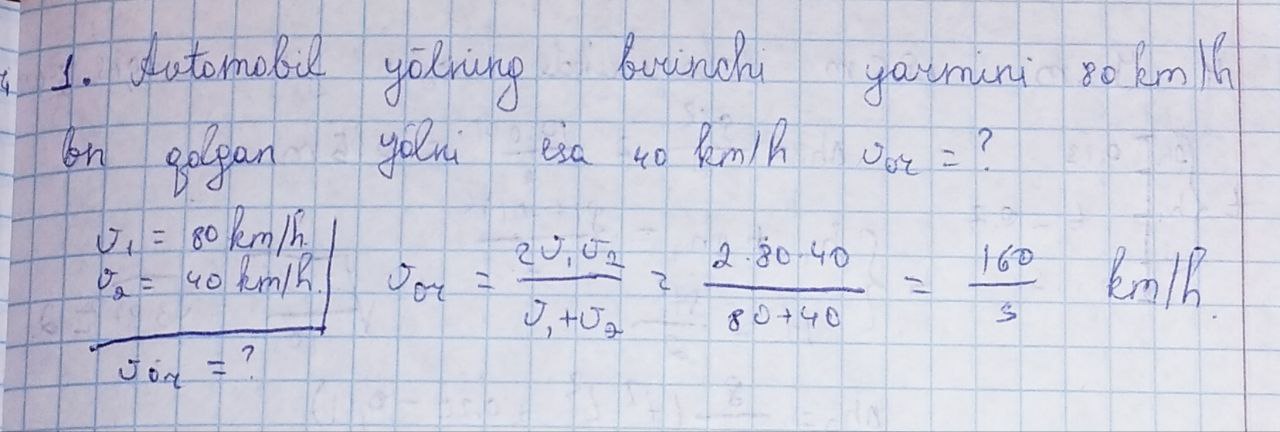 1. Avtomobil yo'lning birinchi yarmini 80 km/h
bn qolgan yo'lni esa 40 km/h υor = ?
υ₁ = 80 km/h.
υ₂ = 40 km/h.
υor = 2υ₁υ₂/υ₁+υ₂ = 2·80·40/80+40 = 160/3 km/h.
υo'r = ?